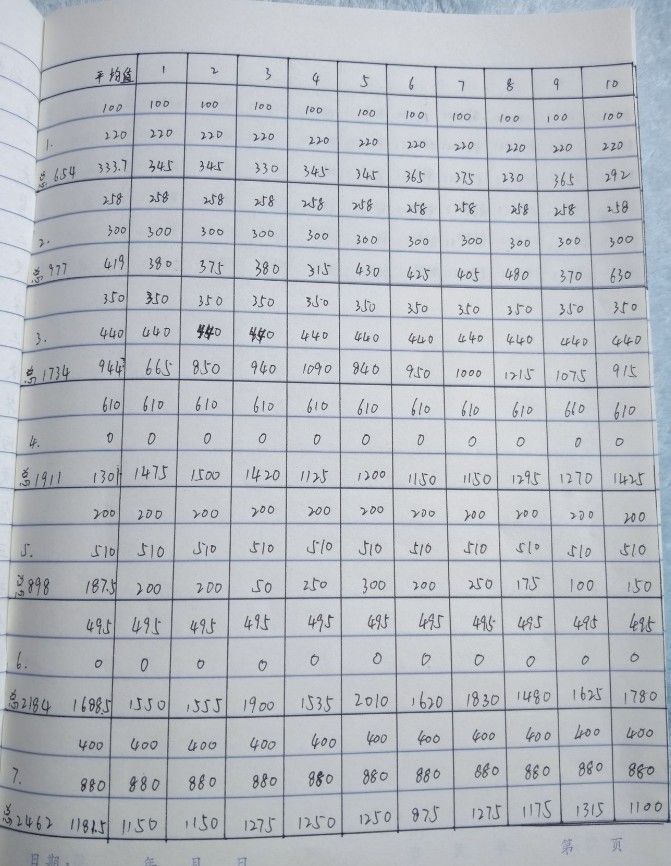 平均值 1 2 3 4 5 6 7 8 9 10
100 100 100 100 100 100 100 100 100 100 100
1. 220 220 220 220 220 220 220 220 220 220 220
总654 333.7 345 345 330 345 345 365 375 230 365 292
258 258 258 258 258 258 258 258 258 258 258
2. 300 300 300 300 300 300 300 300 300 300 300
总977 419 380 375 380 315 430 425 405 480 370 630
350 350 350 350 350 350 350 350 350 350 350
3. 440 440 440 440 440 440 440 440 440 440 440
总1734 944 665 850 940 1090 840 950 1000 1215 1075 915
610 610 610 610 610 610 610 610 610 660 610
4. 0 0 0 0 0 0 0 0 0 0 0
总1911 1301 1475 1500 1420 1125 1200 1150 1150 1295 1270 1425
200 200 200 200 200 200 200 200 200 200 200
5. 510 510 510 510 510 510 510 510 510 510 510
总898 187.5 200 200 50 250 300 200 250 175 100 150
495 495 495 495 495 495 495 495 495 495 495
6. 0 0 0 0 0 0 0 0 0 0 0
总2184 1688.5 1550 1555 1900 1535 2010 1620 1830 1480 1625 1780
400 400 400 400 400 400 400 400 400 400 400
7. 880 880 880 880 880 880 880 880 880 880 880
总2462 1181.5 1150 1150 1275 1250 1250 875 1275 1175 1315 1100
日期: 年 月 日 第 页